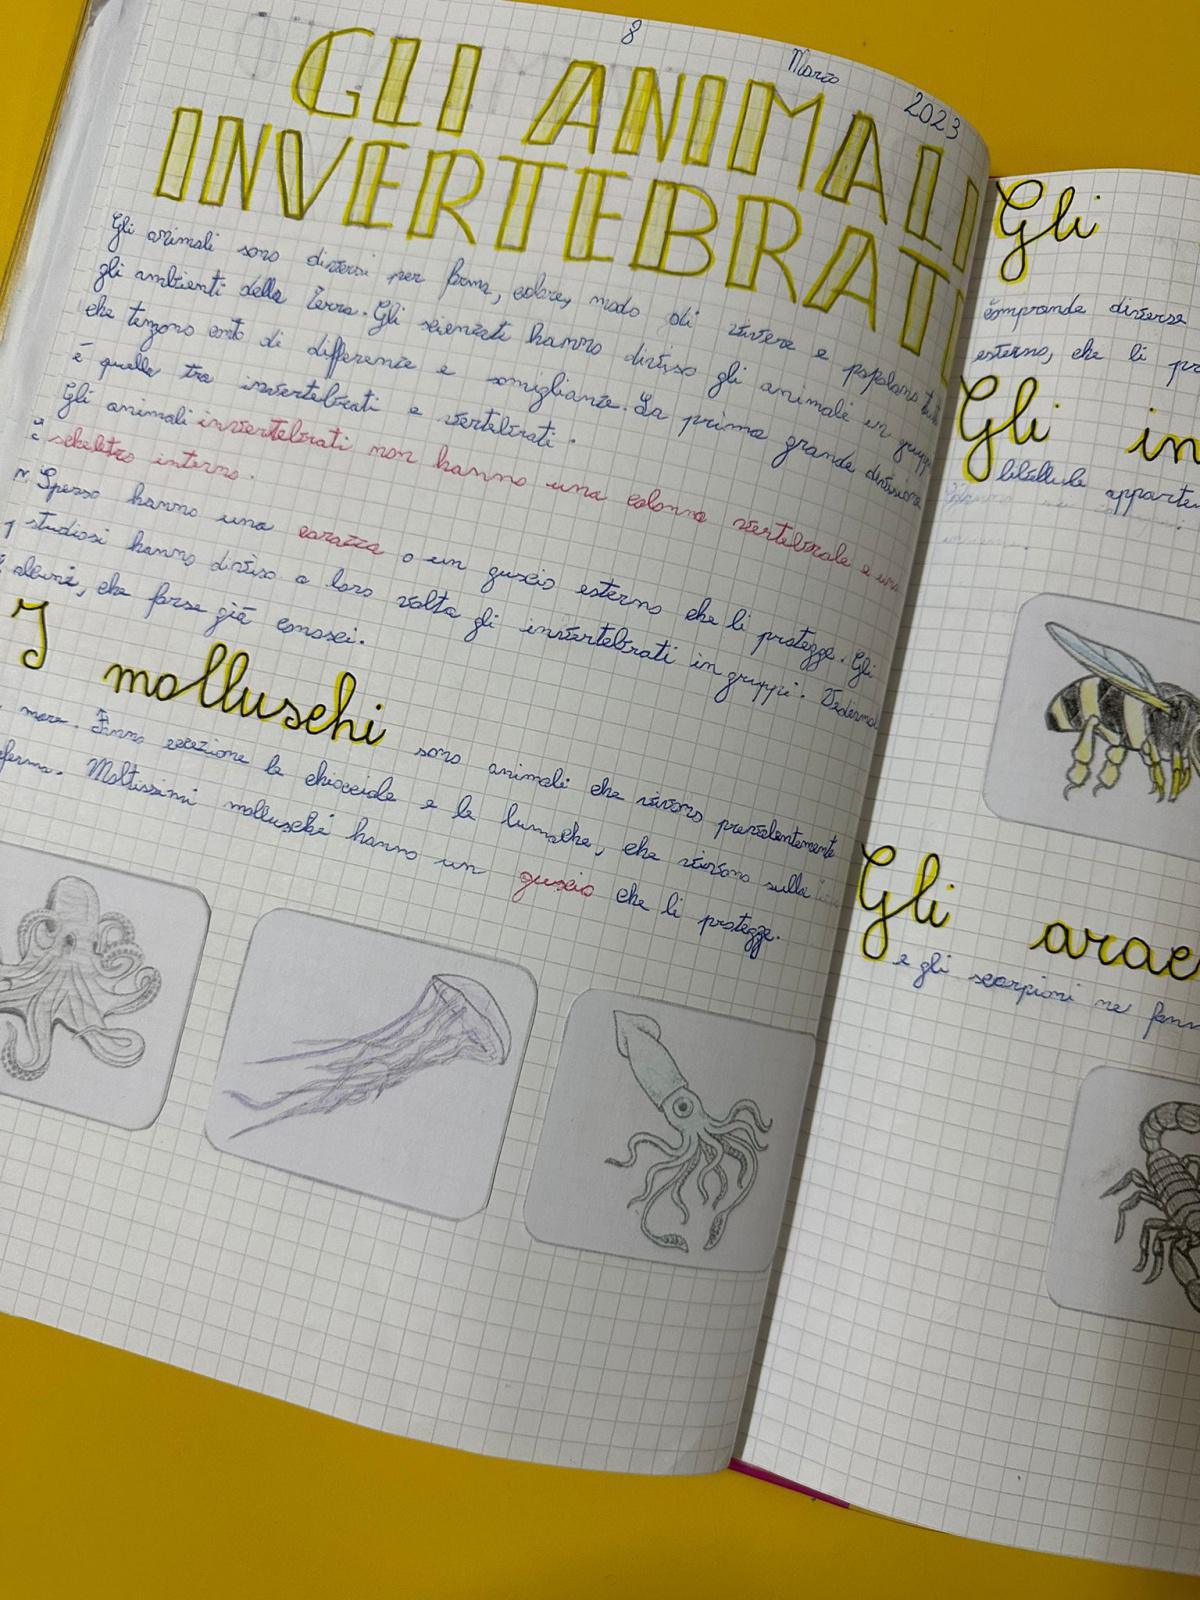 8 Marzo 2023
GLI ANIMALI
INVERTEBRATI
Gli animali sono diversi per forma, colore, modo di vivere e popolano tutti
gli ambienti della Terra. Gli scienziati hanno diviso gli animali in gruppi
che tengono conto di differenze e somiglianze. La prima grande divisione
è quella tra invertebrati e vertebrati.
Gli animali invertebrati non hanno una colonna vertebrale e uno
scheletro interno.
Spesso hanno una corazza o un guscio esterno che li protegge. Gli
studiosi hanno diviso a loro volta gli invertebrati in gruppi. Vediamo
alcuni, che forse già conosci.
I molluschi sono animali che vivono prevalentemente
mare. Fanno eccezione le chiocciole e le lumache, che vivono sulla
ferma. Moltissimi molluschi hanno un guscio che li protegge.
Gli
comprende diverse
esterno, che li pr
Gli in
libellule apparte
Gli arac
e gli scorpioni ne fann